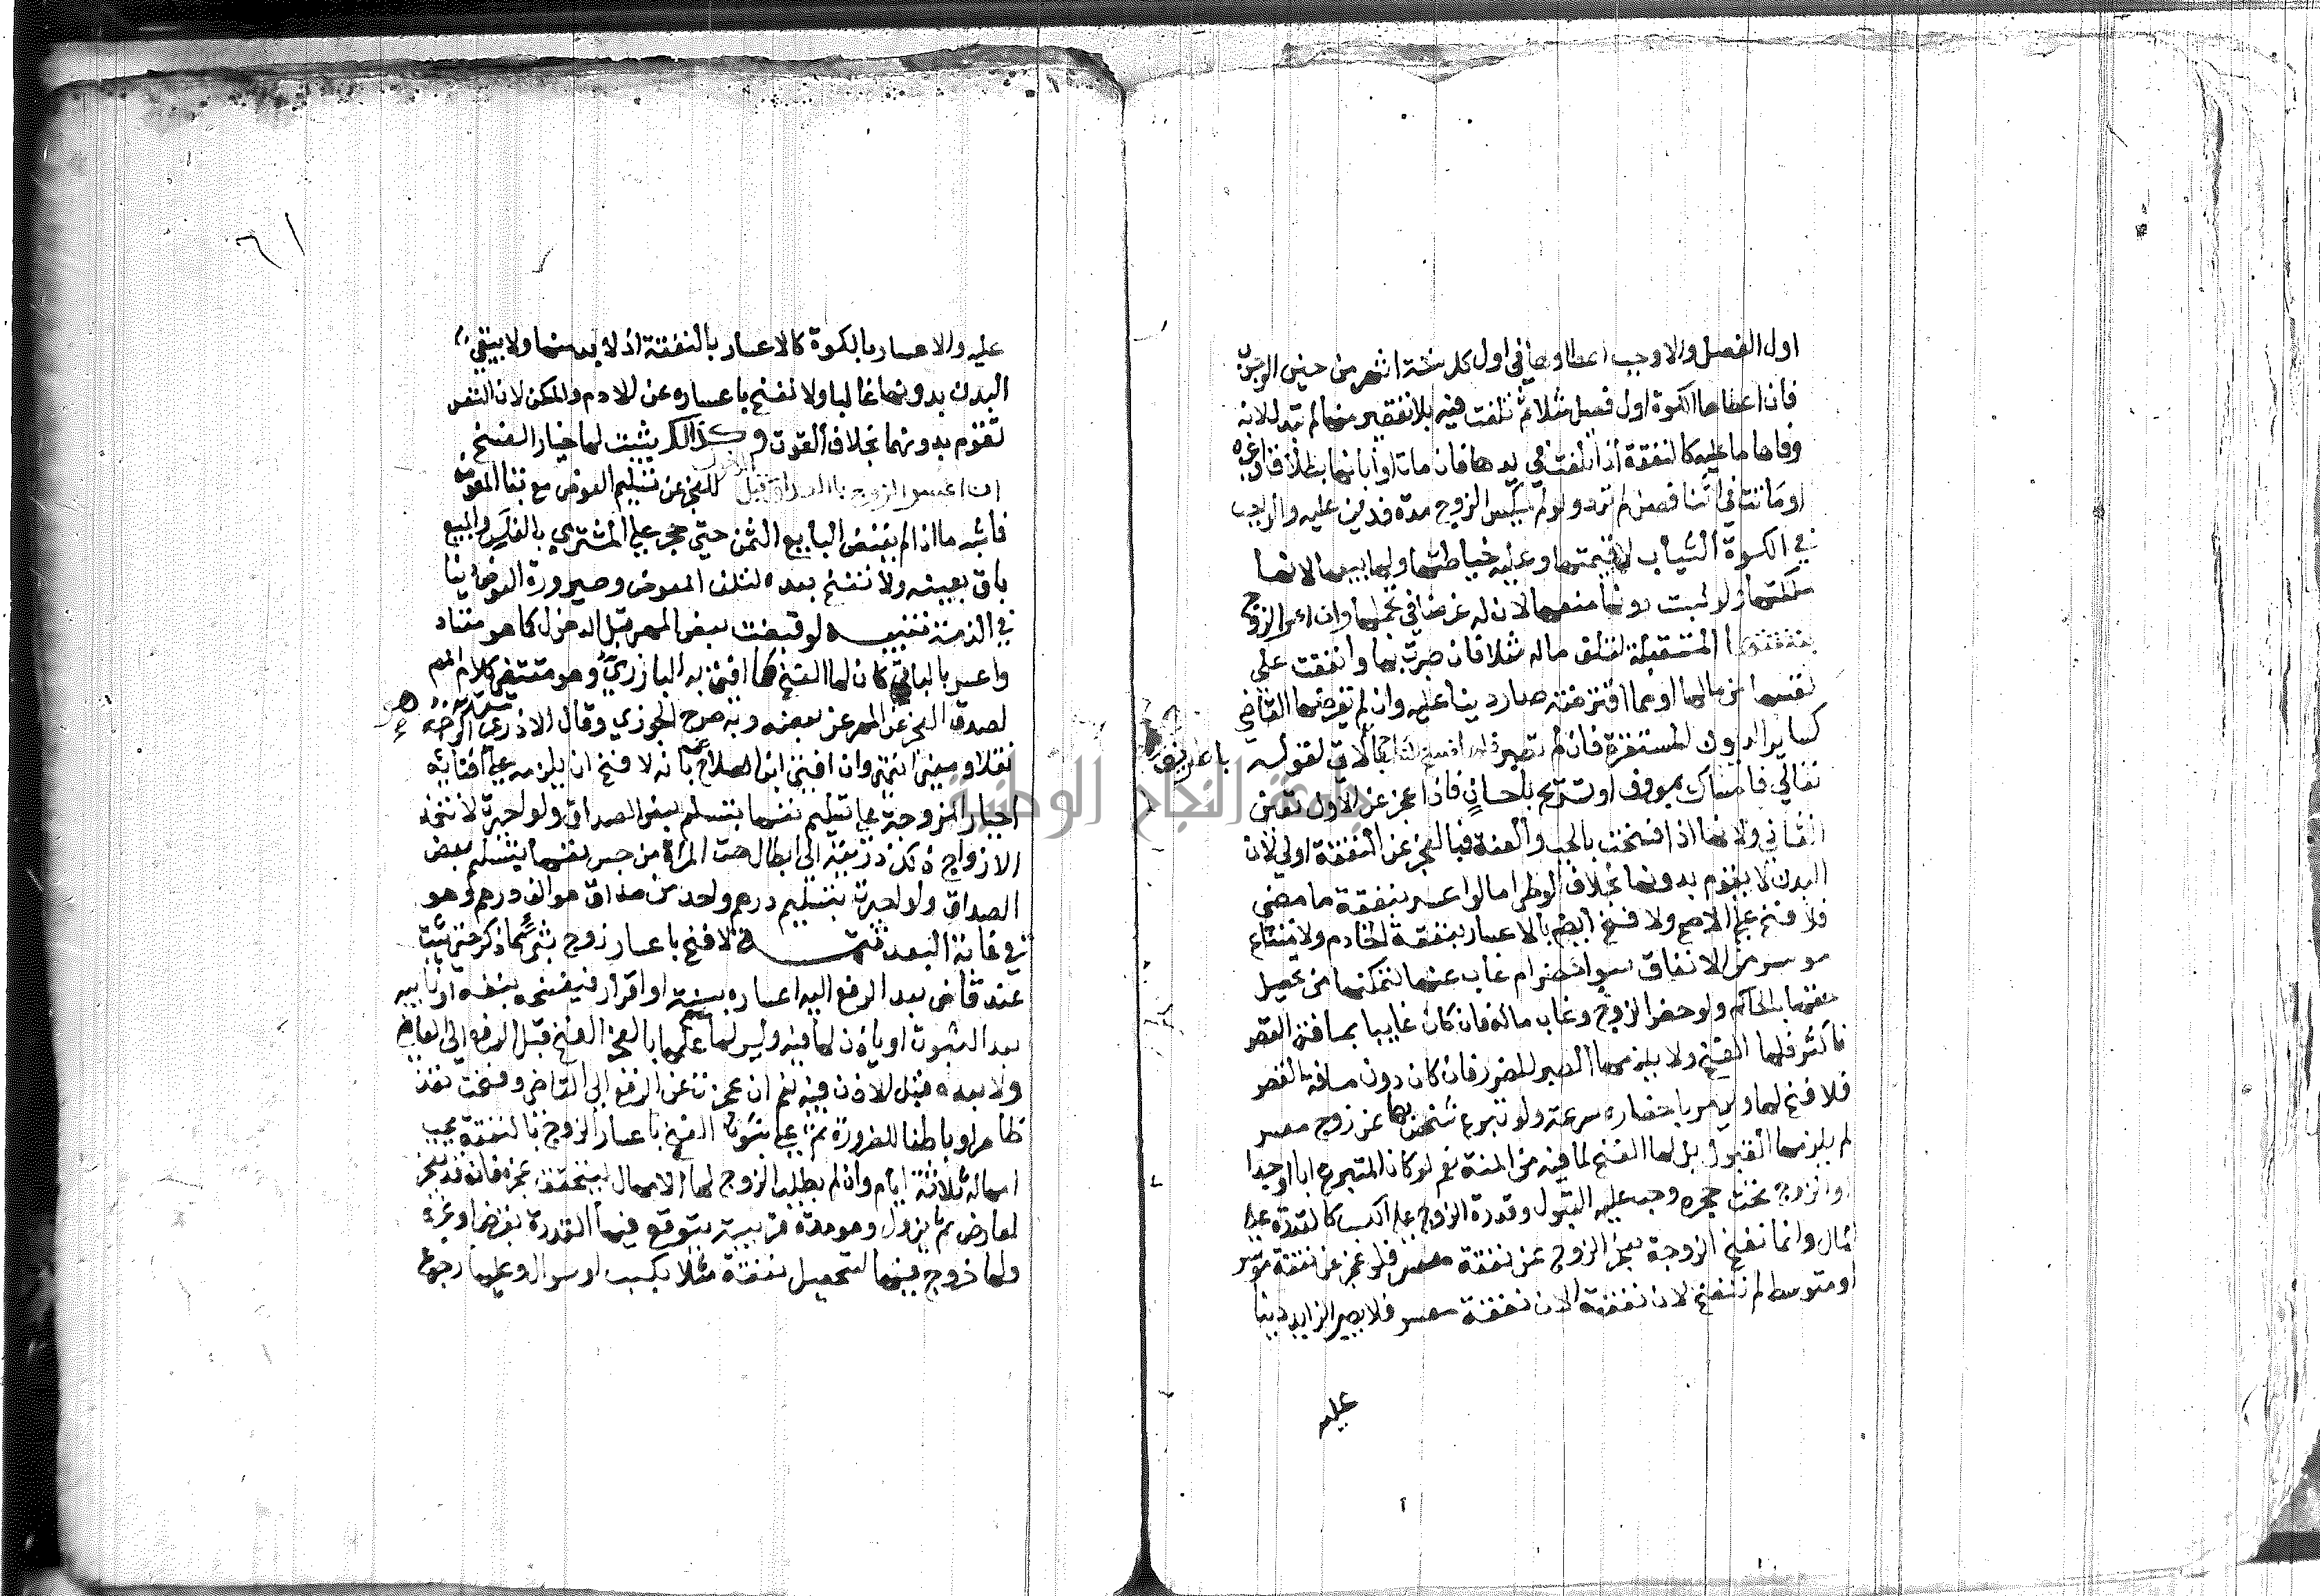 اول الفصل والاوجب اعطاوها في اول كل ستة اشهر من حين الوجوب
فان اعطاها الكسوة اول فصل مثلا ثم تلفت فيه بلا تقصير منها لم تبدل لانه
وفاها ما عليه كالنفقة اذا تلفت في يدها فان مات او ابانها بطلاق او غيره
او ماتت في اثنا فصل لم ترد ولو لم يكس الزوج مدة فدين عليه والواجب
في الكسوة الثياب لا قيمتها وعليه خياطتها ولها بيعها لانها
ملكتها ولو لبست دونها منعها لان له غرضا في تجملها وان اعسر الزوج
بنفقتها المستقبلة لتلف ماله مثلا فان صبرت بها وانفقت على
نفسها من مالها او مما اقترضته صار دينا عليه وان لم يفرضها القاضي
كساير الديون المستقرة فان لم تصبر فلها فسخ النكاح بالطلاق لقوله
تعالي فامساك بمعروف او تسريح باحسان فاذا عجز عن الاول تعين
الثاني ولانها اذا فسخت بالجب والعنة فبالعجز عن النفقة اولي لان
البدن لا يقوم بدونها بخلاف الوطي اما لو اعسر بنفقة ما مضي
فلا فسخ علي الاصح ولا فسخ ايضا بالاعسار بنفقة الخادم ولا بامتناع
موسر من الانفاق سوا حضر ام غاب عنها لتمكنها من تحصيل
حقها بالحاكم ولو حضر الزوج وغاب ماله فان كان غايبا بمسافة القصر
فاكثر فلها الفسخ ولا يلزمها الصبر للضرر فان كان دون مسافة القصر
فلا فسخ لها ويومر باحضاره بسرعة ولو تبرع شخص بها عن زوج معسر
لم يلزمها القبول بل لها الفسخ لما فيه من المنة نعم لو كان المتبرع ابا او جدا
والزوج تحت حجره وجب عليها القبول وقدرة الزوج علي الكسب كالقدرة علي
المال وانما تفسخ الزوجة بعجز الزوج عن نفقة معسر فلو عجز عن نفقة موسر
او متوسط لم تنفسخ لان نفقته الان نفقة معسر فلا يصير الزايد دينا
عليه
٦١
عليه والاعسار بالكسوة كالاعسار بالنفقة اذ لا بد منها ولا يبقي
البدن بدونها غالبا ولا تفسخ باعساره عن الادم والمسكن لان النفس
تقوم بدونهما بخلاف القوت وكذلك يثبت لها خيار الفسخ
ان اعسر الزوج بالصداق قبل الدخول للعجز عن تسليم العوض مع بقا المعوض
فاشبه ما اذا لم يقبض البايع الثمن حتي حجر علي المشتري بالفلس والمبيع
باق بعينه ولا تفسخ بعده لتلف المعوض وصيرورة العوض دينا
في الذمة تنبيه لو قبضت بعض المهر قبل الدخول كما هو معتاد
واعسر بالباقي كان لها الفسخ كما افتي به البارزي وهو مقتضي كلام المصنف
لصدق العجز عن المهر عن بعضه وبه صرح الجوزي وقال الاذرعي هو الوجه
نقلا ومعني انتهي وان افتي ابن الصلاح بانه لا فسخ اذ يلزم علي افتايه
اجبار الزوجة علي تسليم نفسها بتسليم بعض الصداق ولو اجبرت لاتخذ
الازواج ذلك ذريعة الي ابطال حق المراة من حبس نفسها بتسليم بعض
الصداق ولو اجبرت بتسليم درهم واحد من صداق هو الف درهم وهو
في غاية البعد تتمة لا فسخ باعسار زوج بشي مما ذكر حتي يثبت
عند قاض بعد الرفع اليه اعساره ببينة او اقرار فيفسخه بنفسه او نايبه
بعد الثبوت او ياذن لها فيه وليس لها مع علمها بالعجز الفسخ قبل الرفع الي القاضي
ولا بعده قبل الاذن فيه نعم ان عجزت عن الرفع الي القاضي وفسخت نفذ
ظاهرا وباطنا للضرورة ثم علي ثبوت الفسخ باعسار الزوج بالنفقة يجب
امهاله ثلاثة ايام وان لم يطلب الزوج لها الامهال ليتحقق عجزه فانه قد يعجز
لعارض ثم يزول وهو مدة قريبة يتوقع فيها القدرة بقرض او غيره
ولها خروج فيها لتحصيل نفقة مثلا بكسب او سوال وعليها رجوع
جامعة النجاح الوطنية